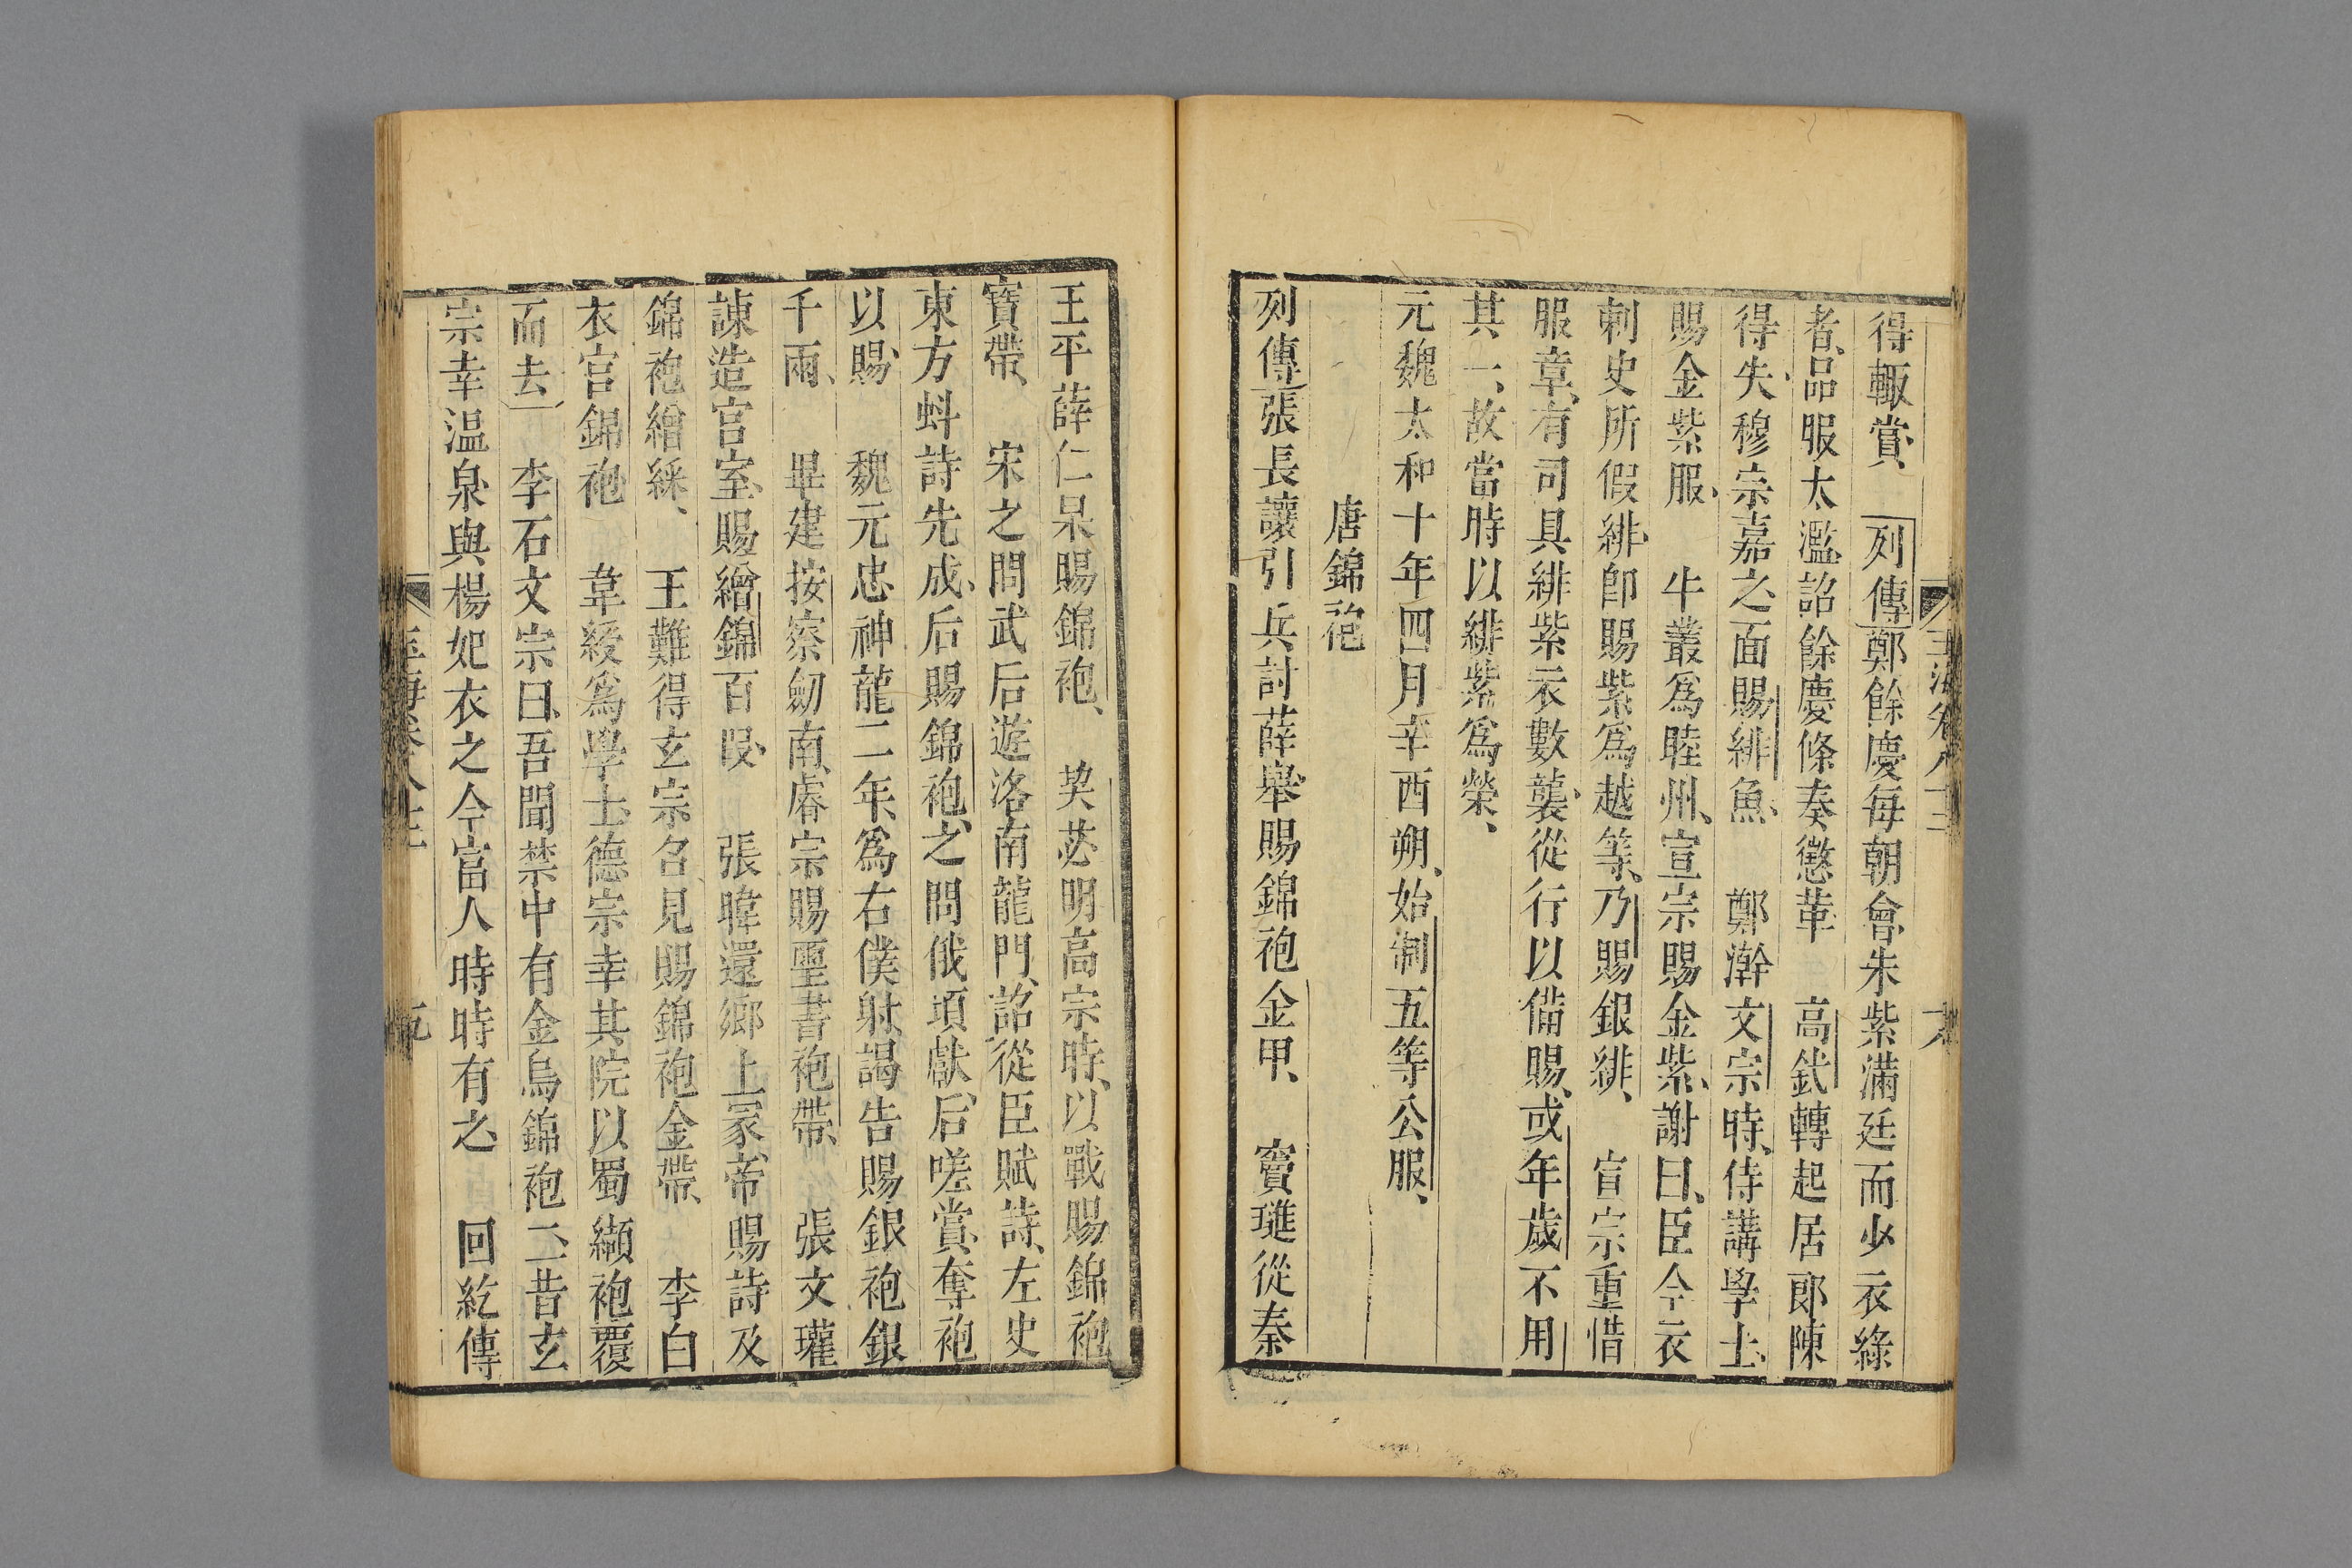 得輙賞、 列傳鄭餘慶每朝會、朱紫滿廷而少衣綠
者、品服太濫、詔餘慶條奏懲革 高釴轉起居郎陳
得失、穆宗嘉之、面賜緋魚、 鄭澣文宗時、侍講學士、
賜金紫服、 牛叢爲睦州、宣宗賜金紫、謝曰、臣今衣
刺史所假緋、卽賜紫爲越等、乃賜銀緋、 宣宗重惜
服章、有司具緋紫衣數襲、從行以備賜、或年歲不用
其一、故當時以緋紫爲榮、
元魏太和十年四月辛酉朔、始制五等公服、
唐錦袍
列傳張長讓引兵討薛舉、賜錦袍金甲、 竇璡從秦
王平薛仁杲賜錦袍、 契苾明高宗時、以戰賜錦袍
寶帶、 宋之問武后遊洛南龍門、詔從臣賦詩、左史
東方虯詩先成、后賜錦袍、之問俄頃獻、后嗟賞、奪袍
以賜、 魏元忠神龍二年、爲右僕射、謁告賜銀袍銀
千兩、 畢建按察劒南、睿宗賜璽書袍帶、 張文瓘
諫造宮室、賜繒錦百段、 張暐還鄉上冢、帝賜詩及
錦袍繒綵、 王難得玄宗召見賜錦袍金帶、 李白
衣宮錦袍 韋綬爲學士、德宗幸其院以蜀纈袍覆
而去 李石文宗曰、吾聞禁中有金烏錦袍二、昔玄
宗幸温泉、與楊妃衣之、今富人時時有之、 回紇傳
玉海卷八十二